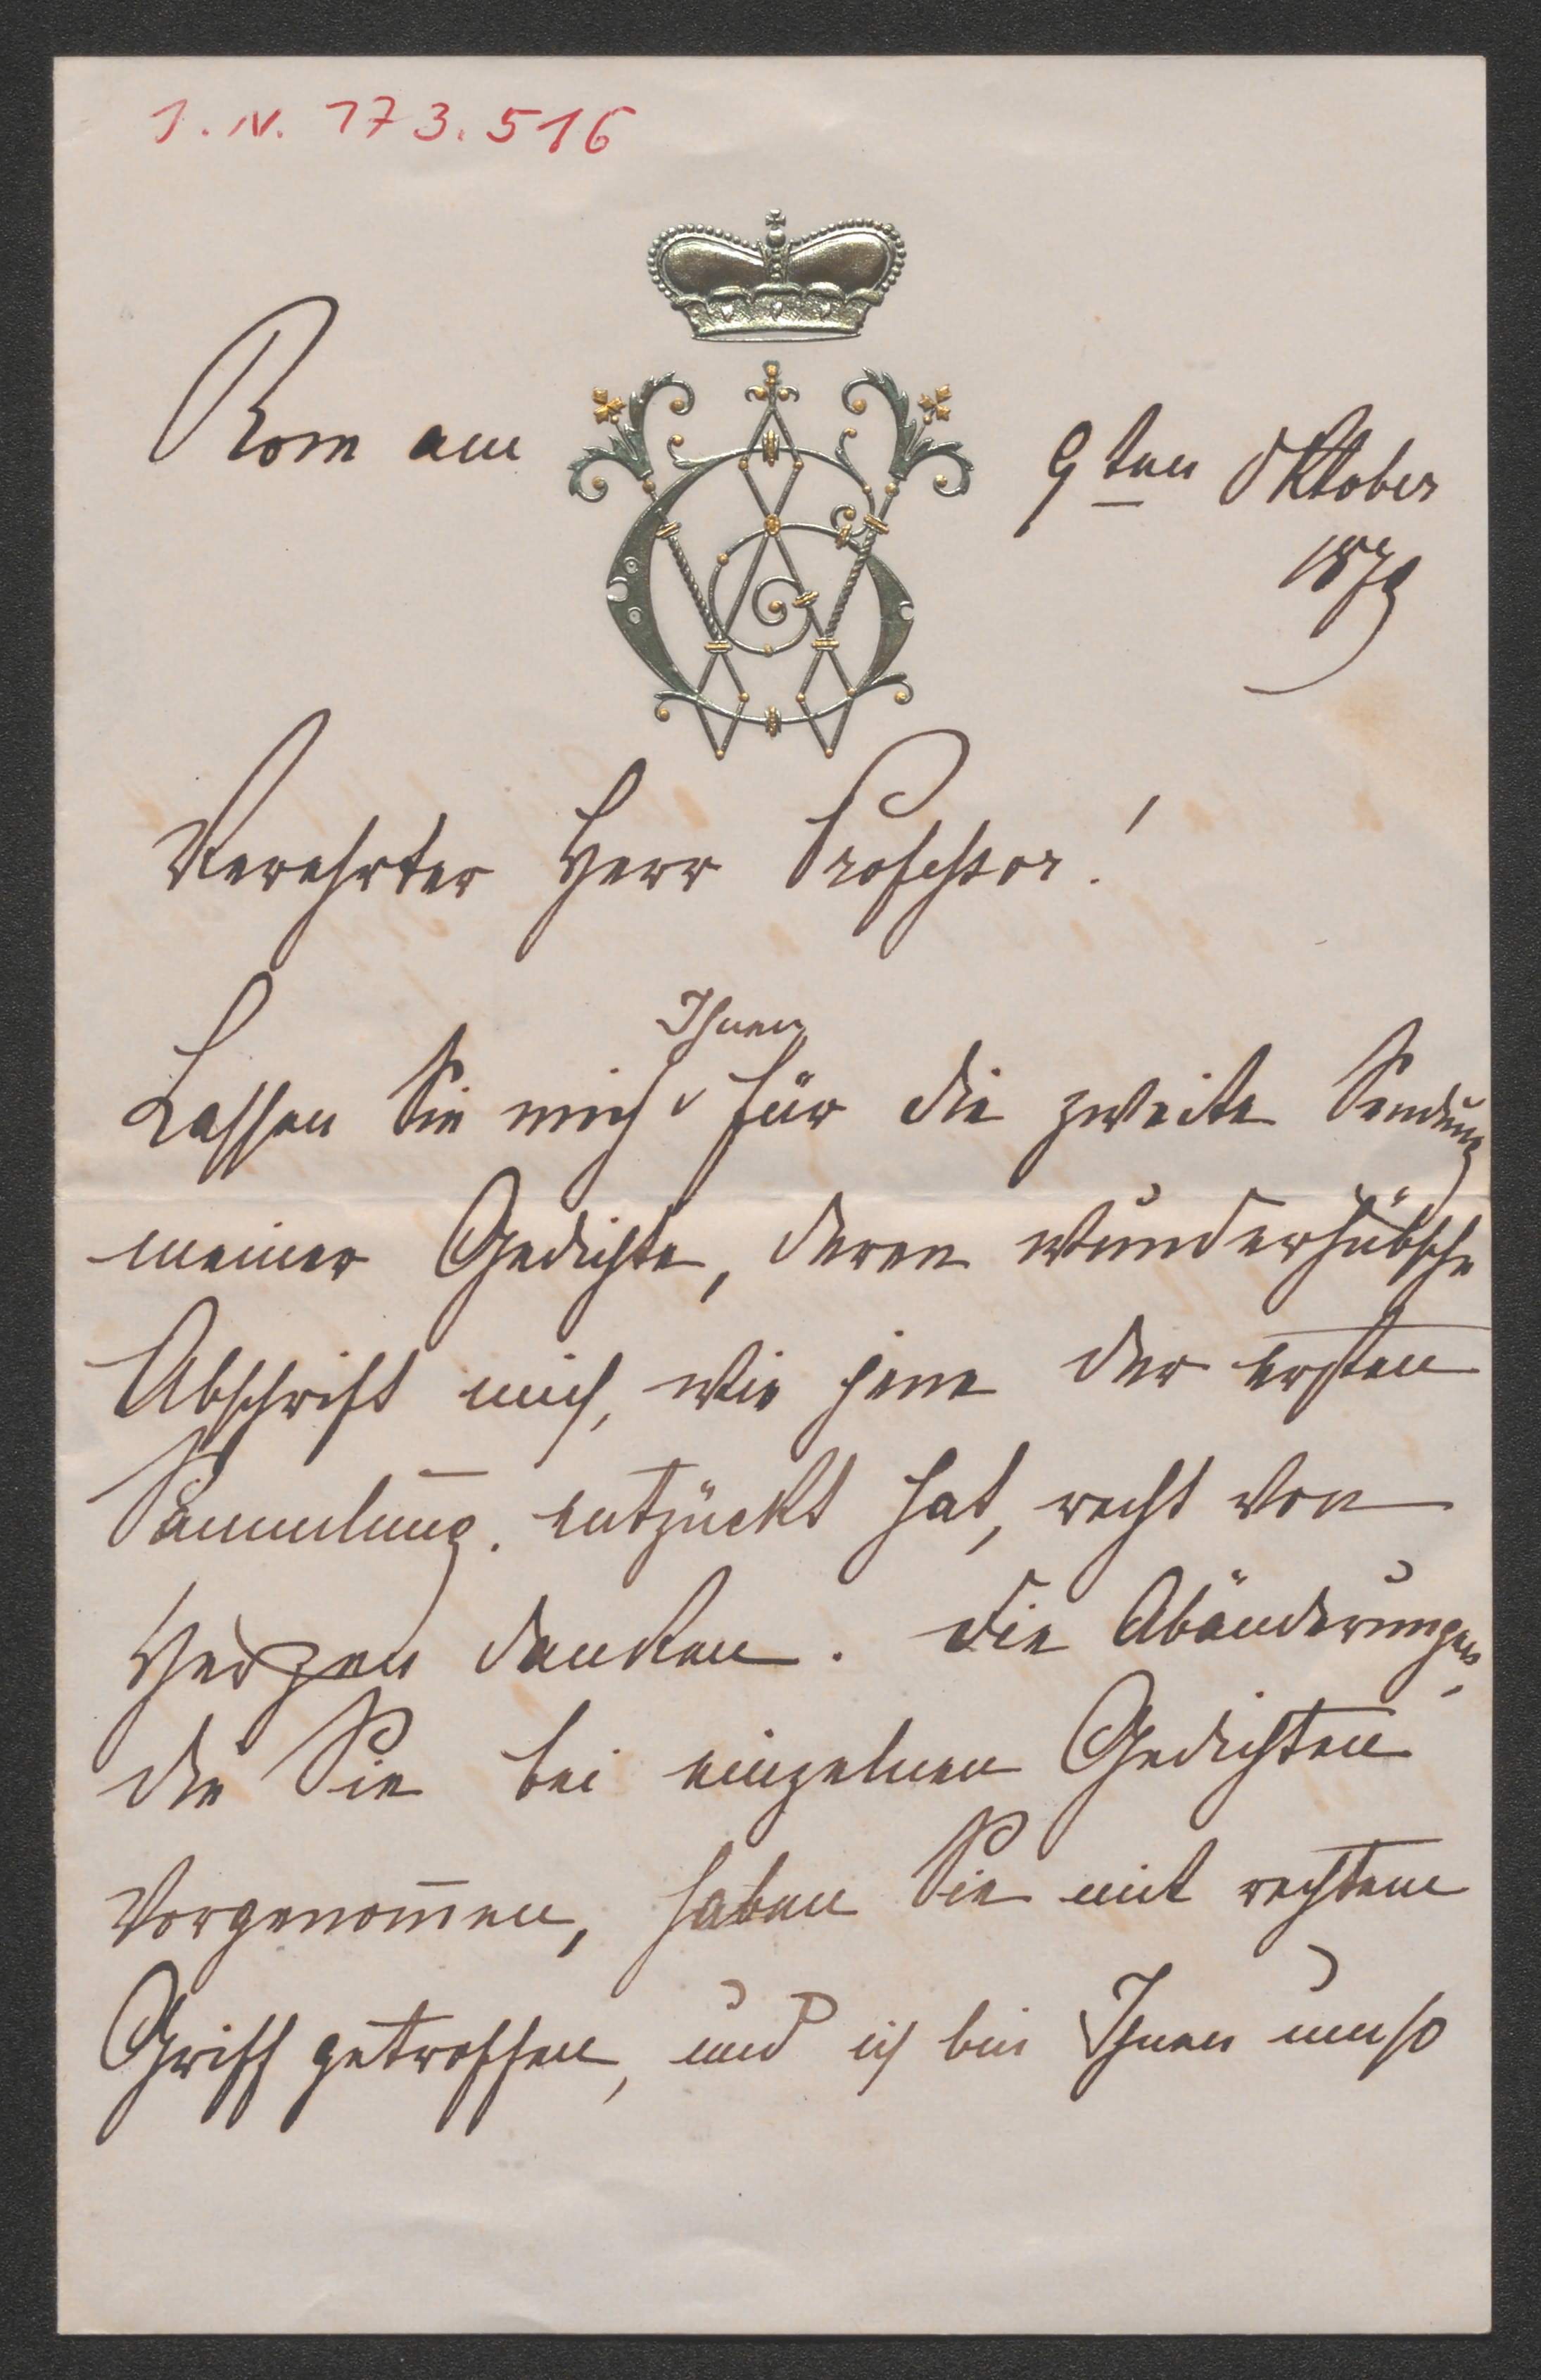 J. N. 173.516
Rom am 9ten Oktober
1879
Verehrter Herr Professor!
Ihnen
Lassen Sie mich für die zweite Sendung
meiner Gedichte, deren wunderhübsche
Abschrift mich, wie jene der ersten
Sammlung. entzückt hat, recht von
Herzen danken. Die Abänderungen,
die Sie bei einzelnen Gedichten
vorgenom̄en, haben Sie mit rechtem
Griff getroffen, und ich bin Ihnen umso